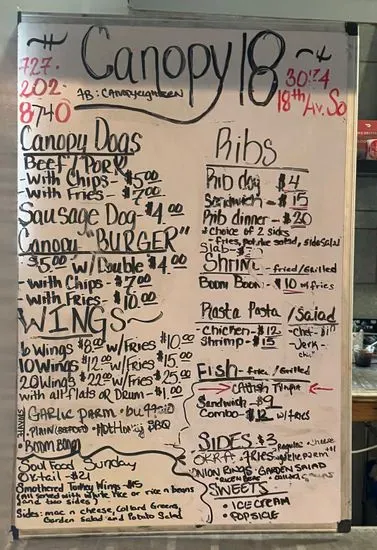 Canopy 18
727-
202-
8740
30 74
18th Av. So
FB: CanopyEighteen
Canopy Dogs
Beef/Pork
- With Chips - $5.00
- With Fries - $7.00
Sausage Dog - $4.00
Canopy "BURGER"
$5.00 w/Double $4.00
- With Chips - $7.00
- With Fries - $10.00
WINGS
6 Wings $8.00 w/Fries $10.00
10 Wings $12.00 w/Fries $15.00
20 Wings $22.00 w/Fries $25.00
with all flats or Drum - $1.00
GARLIC PARM • buffalo
• PLAIN • Hot Honey BBQ
• Boom Boom
Soul Food Sunday
Oxtail - $21
Smothered Turkey Wings - $15
(All served with white rice or rice n beans
and two sides)
Sides: mac n cheese, Collard Greens,
Garden Salad and Potato Salad
Ribs
Rib dog - $4
Sandwich - $15
Rib dinner - $20
* choice of 2 sides
- fries, side salad
Slab -
Shrim - fried/Grilled
Boom Boom - $10 w/fries
Rasta Pasta / Salad
- Chicken - $12
- Shrimp - $15
- Jerk -
Fish - fried/Grilled
Catfish Tilapia
Sandwich - $9
Combo - $12 w/fries
SIDES - $3
OKRA • FRIES
ONION RINGS • GARDEN SALAD
SWEETS
• ICE CREAM
• POPSICLE